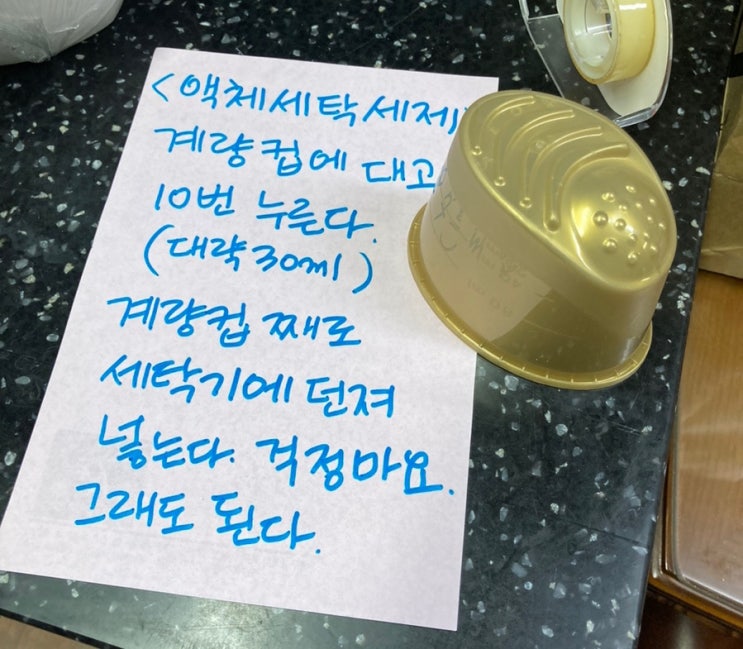 <액체세탁세제>
계량컵에 대고
10번 누른다.
(대략 30ml)
계량컵 째로
세탁기에 던져
넣는다. 걱정마요.
그래도 된다.